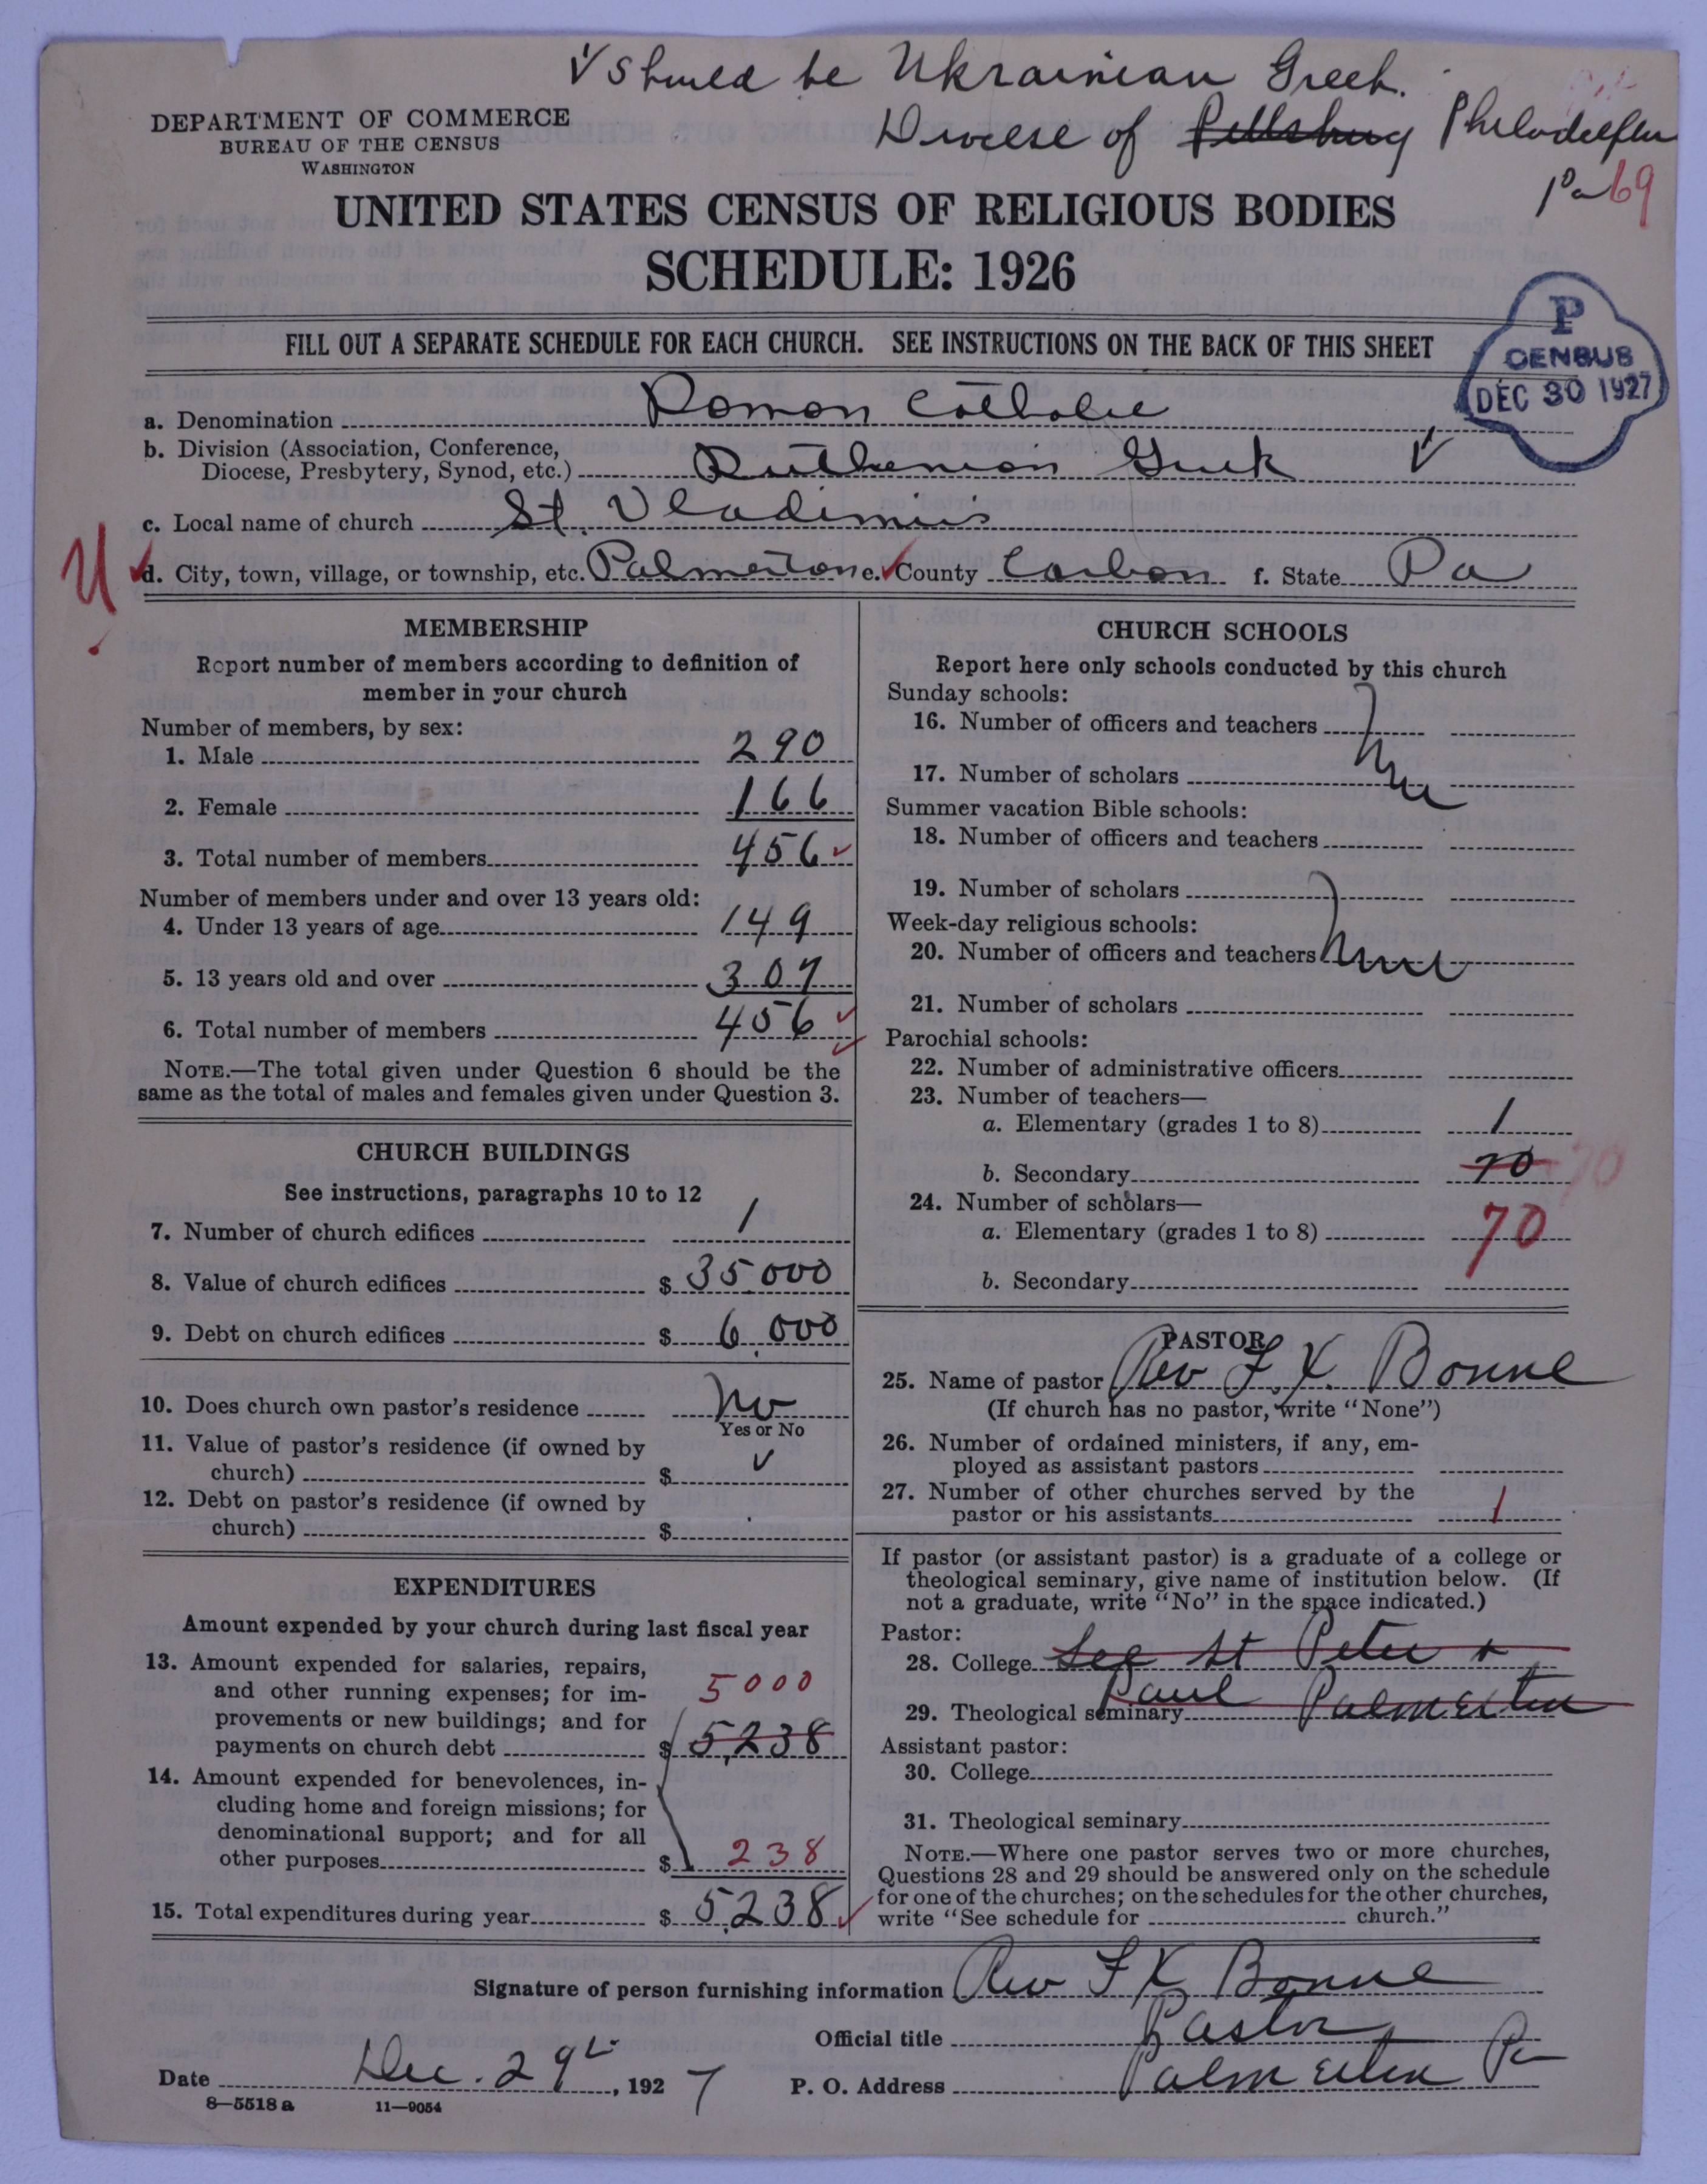 ✓ Should be Ukrainian Greek.
Diocese of Pittsburg Philadelphia
Pa 69
DEPARTMENT OF COMMERCE
BUREAU OF THE CENSUS
WASHINGTON
UNITED STATES CENSUS OF RELIGIOUS BODIES
SCHEDULE: 1926
FILL OUT A SEPARATE SCHEDULE FOR EACH CHURCH. SEE INSTRUCTIONS ON THE BACK OF THIS SHEET
P
CENSUS
DEC 30 1927
a. Denomination Roman Catholic
b. Division (Association, Conference,
Diocese, Presbytery, Synod, etc.) Ruthenian Greek ✓
c. Local name of church St. Vladimirs
U
d. City, town, village, or township, etc. Palmerton e. County Carbon f. State Pa
MEMBERSHIP
Report number of members according to definition of
member in your church
Number of members, by sex:
1. Male 290
2. Female 166
3. Total number of members 456
Number of members under and over 13 years old:
4. Under 13 years of age 149
5. 13 years old and over 307
6. Total number of members 456
NOTE.—The total given under Question 6 should be the
same as the total of males and females given under Question 3.
CHURCH BUILDINGS
See instructions, paragraphs 10 to 12
7. Number of church edifices 1
8. Value of church edifices $ 35000
9. Debt on church edifices $ 6,000
10. Does church own pastor's residence No
Yes or No
11. Value of pastor's residence (if owned by
church) $ ✓
12. Debt on pastor's residence (if owned by
church) $
EXPENDITURES
Amount expended by your church during last fiscal year
13. Amount expended for salaries, repairs,
and other running expenses; for im- 5000
provements or new buildings; and for
payments on church debt $ 5,238
14. Amount expended for benevolences, in-
cluding home and foreign missions; for
denominational support; and for all
other purposes $ 238
15. Total expenditures during year $ 5,238
CHURCH SCHOOLS
Report here only schools conducted by this church
Sunday schools:
16. Number of officers and teachers
17. Number of scholars none
Summer vacation Bible schools:
18. Number of officers and teachers
19. Number of scholars
Week-day religious schools:
20. Number of officers and teachers none
21. Number of scholars
Parochial schools:
22. Number of administrative officers
23. Number of teachers—
a. Elementary (grades 1 to 8) 1
b. Secondary 70 70
24. Number of scholars—
a. Elementary (grades 1 to 8) 70
b. Secondary
PASTOR
25. Name of pastor Rev F. X. Bonne
(If church has no pastor, write "None")
26. Number of ordained ministers, if any, em-
ployed as assistant pastors
27. Number of other churches served by the
pastor or his assistants 1
If pastor (or assistant pastor) is a graduate of a college or
theological seminary, give name of institution below. (If
not a graduate, write "No" in the space indicated.)
Pastor:
28. College See St Peter +
29. Theological seminary Paul Palmerton
Assistant pastor:
30. College
31. Theological seminary
NOTE.—Where one pastor serves two or more churches,
Questions 28 and 29 should be answered only on the schedule
for one of the churches; on the schedules for the other churches,
write "See schedule for church."
Signature of person furnishing information Rev F X Bonne
Official title Pastor
Date Dec. 29th, 1927 P. O. Address Palmerton Pa
8—5518 a 11—9054